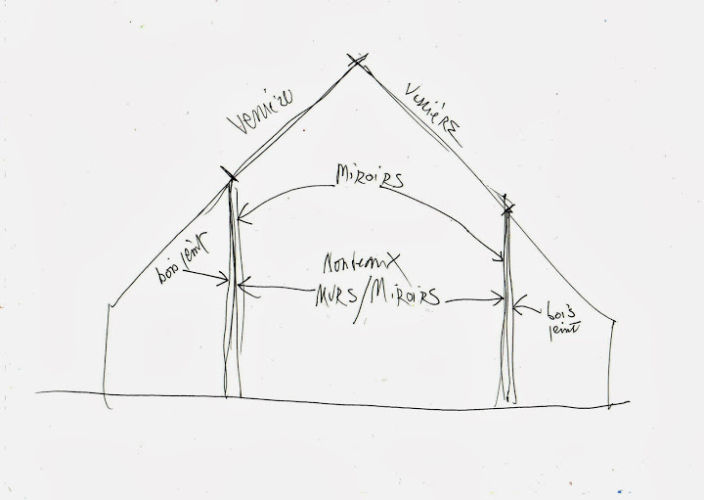 Verrière
VERRIÈRE
MiRoiRS
bois peint
Nouveaux
MURS/MiRoiRS
bois
peint